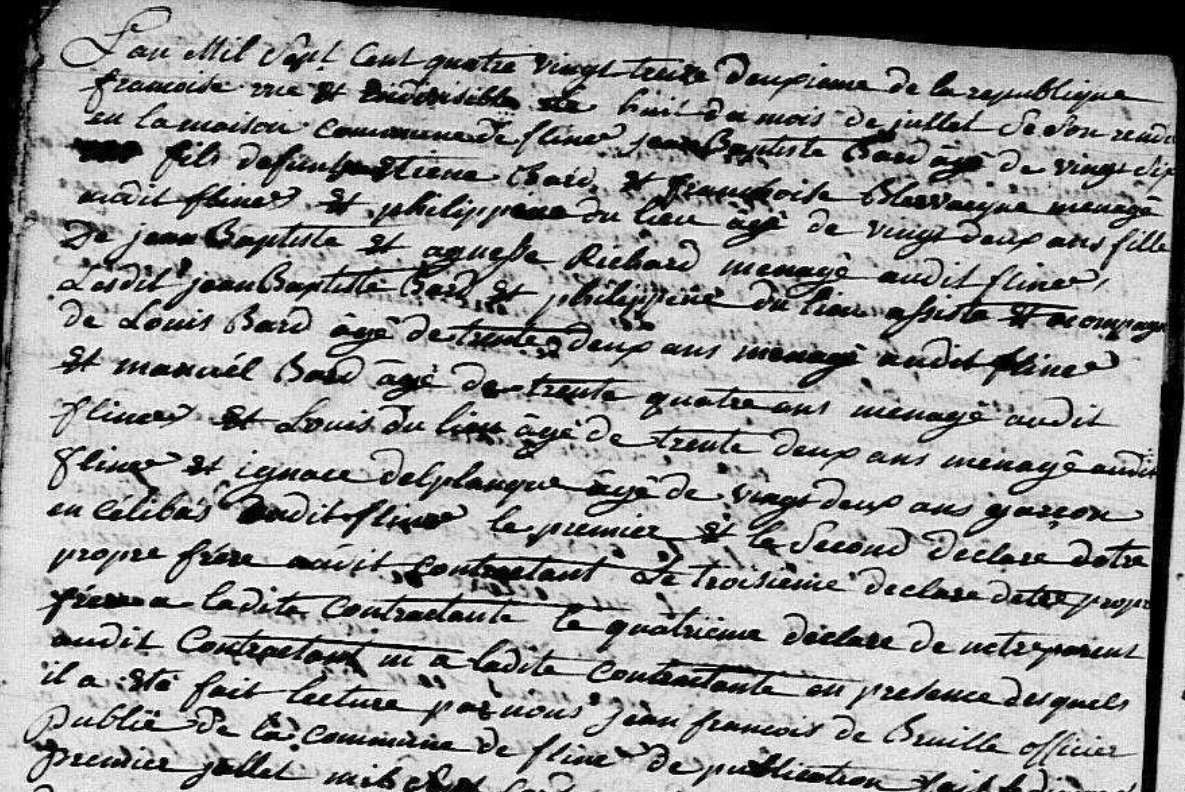 L'an Mil Sept Cent quatre vingt treize deuxieme de la republique
francoise une et indivisible le huit du mois de jullet Se Son rendu
en la maison commune de fline jean Baptiste Bard âgé de vingt six
fils defunt Etiene Bard et franchoise menagé
audit fline et philippene du lieu âgé de vingt deux ans fille
De jean Baptiste et agnesse Richard menagé audit fline,
Lesdit jean Baptiste Bard et philippine du lieu assiste et acompagn
de Louis Bard âgé de trente deux ans menagé audit fline
et manuël Bard âgé de trente quatre ans menagé audit
fline et Louis du lieu âgé de trente deux ans menagé audit
fline et ignace delplanque âgé de vingt deux ans garcon
en célibas audit fline le premier et le Second declare dotre
propre frére audit contractant Le troisiéme declare detre propre
frére a ladite contractante le quatrieme declare de netre parent
audit Contractant ni a ladite contractante en presence desquels
il a été fait lecture par nous jean francois de Bruille officier
publie de la commune de fline de publication fait le
premier jullet mil Sept Cent